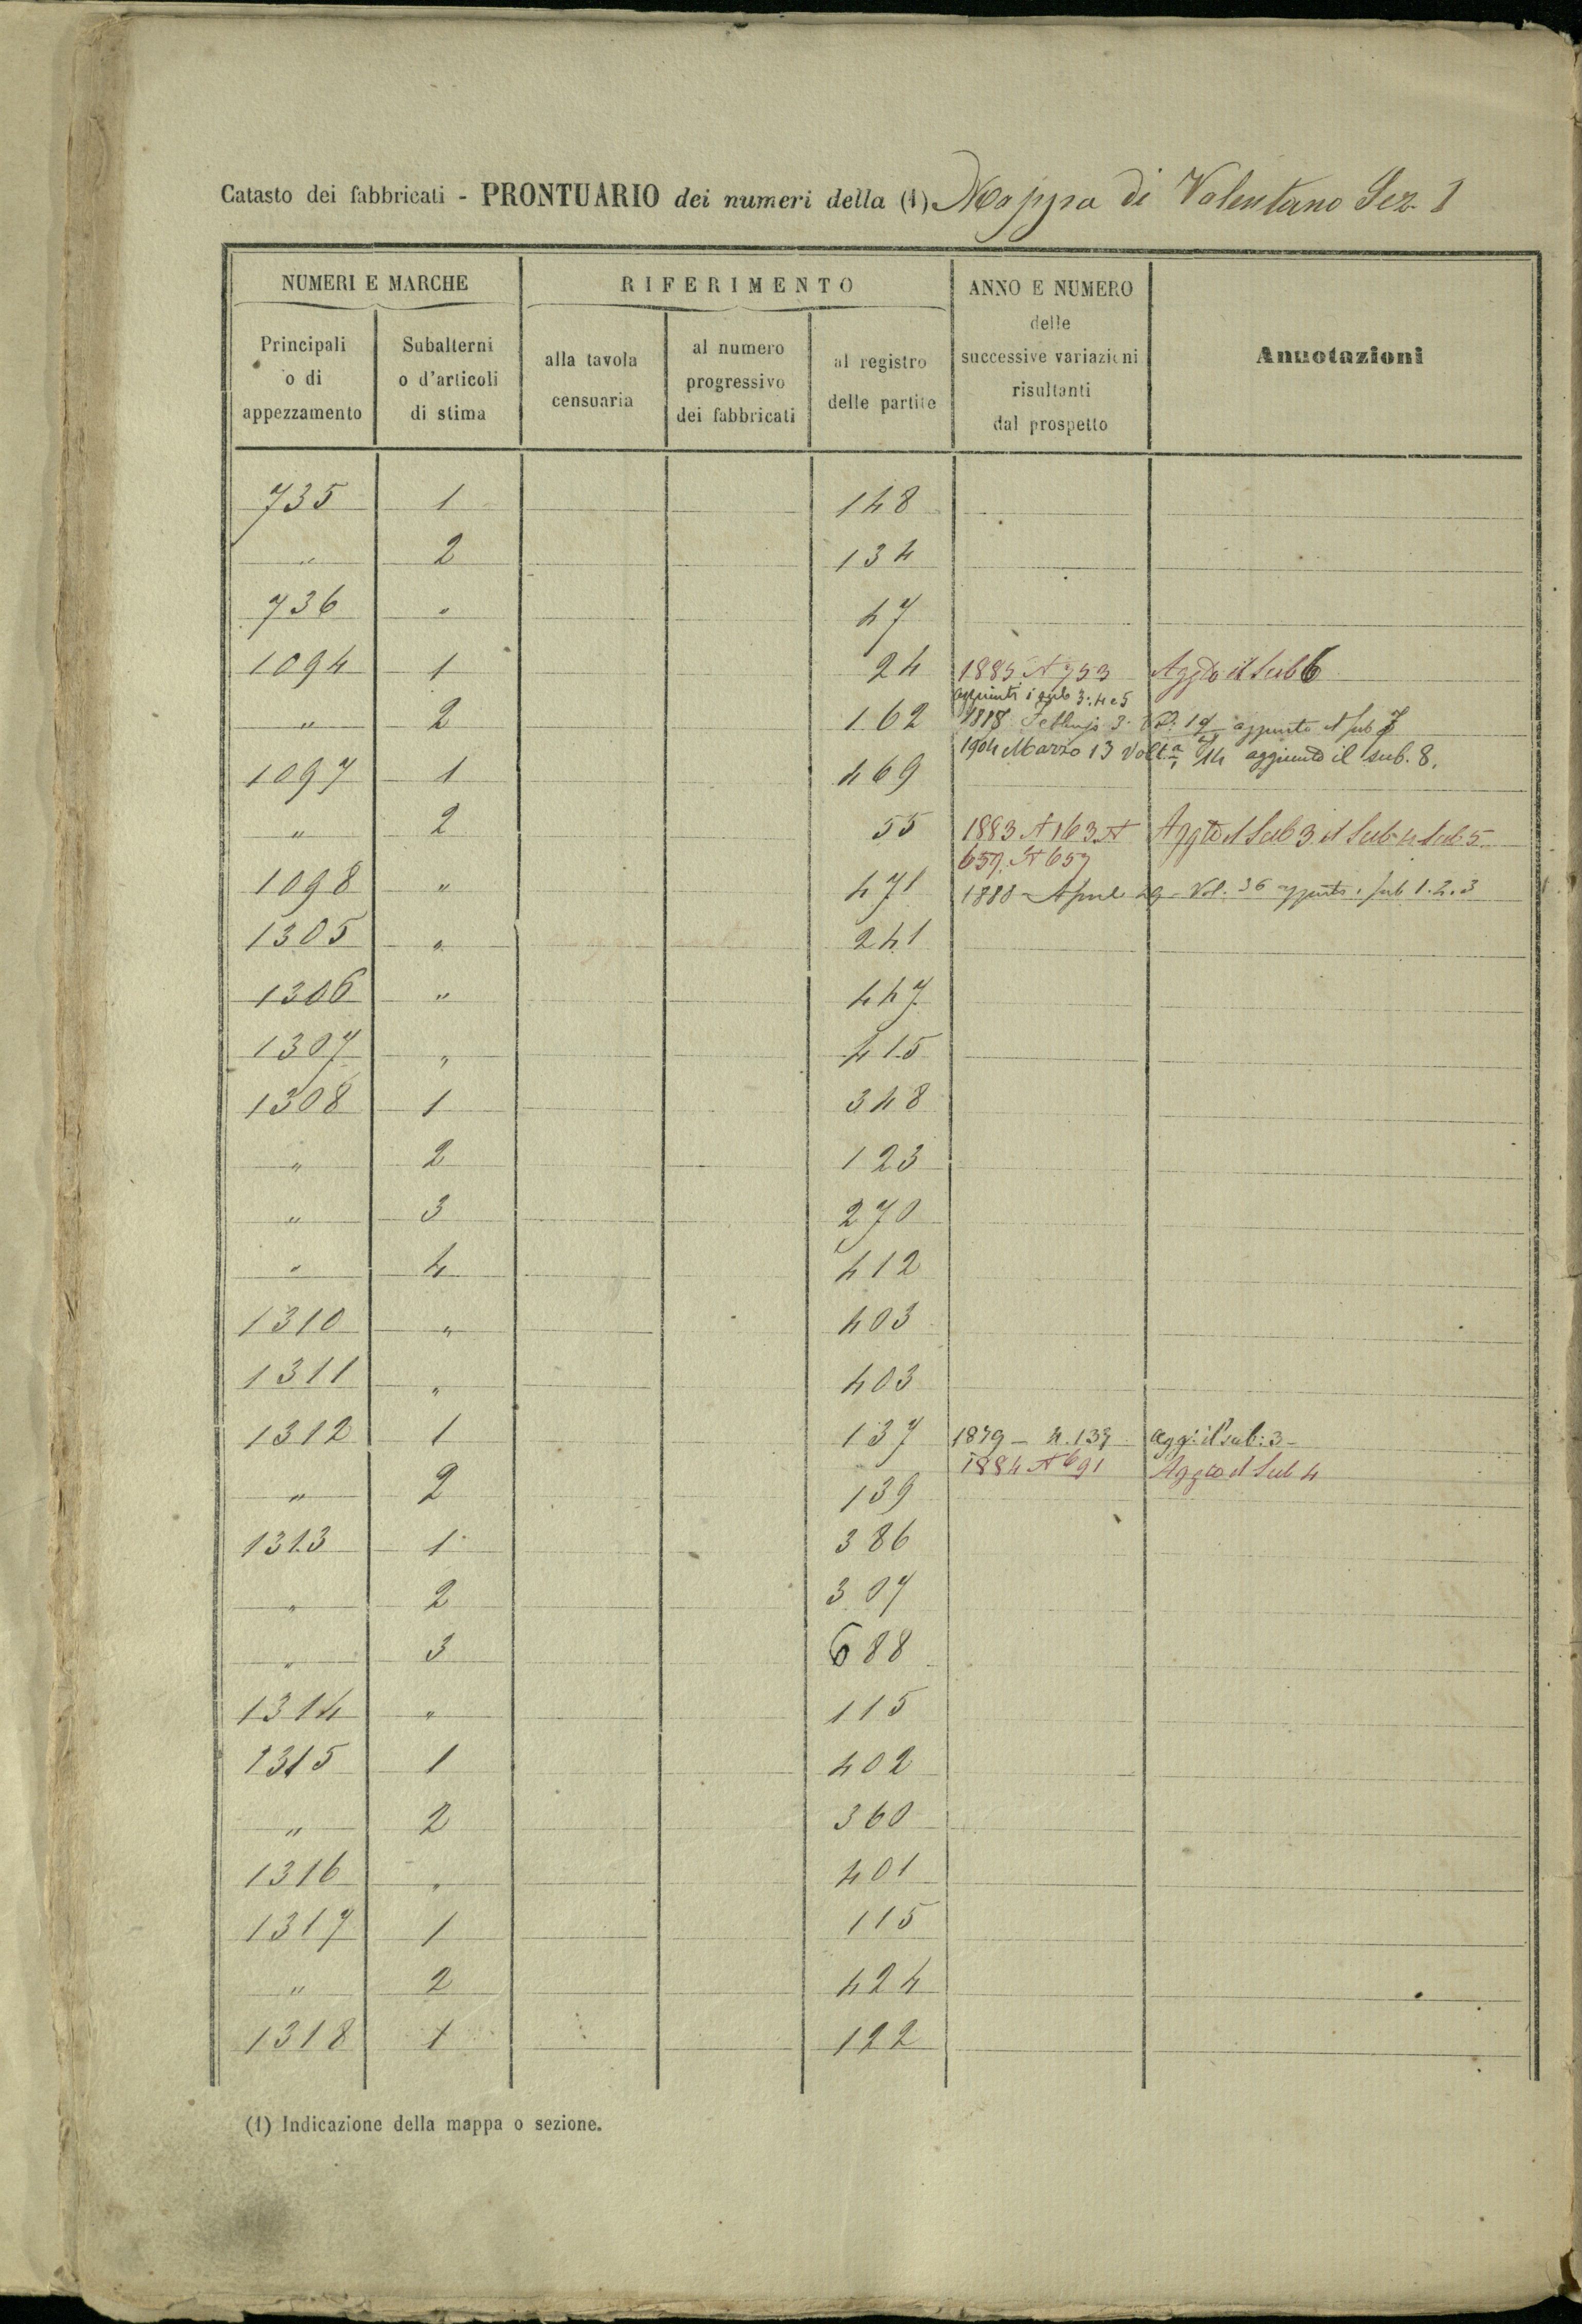 Catasto dei fabbricati - PRONTUARIO dei numeri della (1) Mappa di Valentano Sez. 1
NUMERI E MARCHE RIFERIMENTO ANNO E NUMERO delle successive variazioni risultanti dal prospetto Annotazioni
Principali o di appezzamento Subalterni o d'articoli di stima alla tavola censuaria al numero progressivo dei fabbricati al registro delle partite
735 1 148
" 2 134
736 " 47
1094 1 24 1885 N 753 Aggto il Sub 6
aggiunti i sub 3. 4 e 5
" 2 162 Febbrajo 3 Vol. 19 aggiunto il sub 7
1904 Marzo 13 Volt.a 14 aggiunto il sub. 8.
1097 1 469
" 2 55 1883 N 163 N Aggto il Sub 3 il Sub 4 Sub 5
657. N 657
1098 " 471 1888 Aprile 29 - Vol. 36 aggiunti i sub 1. 2. 3
1305 " 241
1306 " 447
1307 " 415
1308 1 348
" 2 123
" 3 270
" 4 412
1310 " 403
1311 " 403
1312 1 137 1879 - n. 137 agg: il sub: 3 -
1884 N 691 Aggto il Sub 4
" 2 139
1313 1 386
" 2 307
" 3 688
1314 " 115
1315 1 402
" 2 360
1316 " 401
1317 1 115
" 2 424
1318 1 122
(1) Indicazione della mappa o sezione.